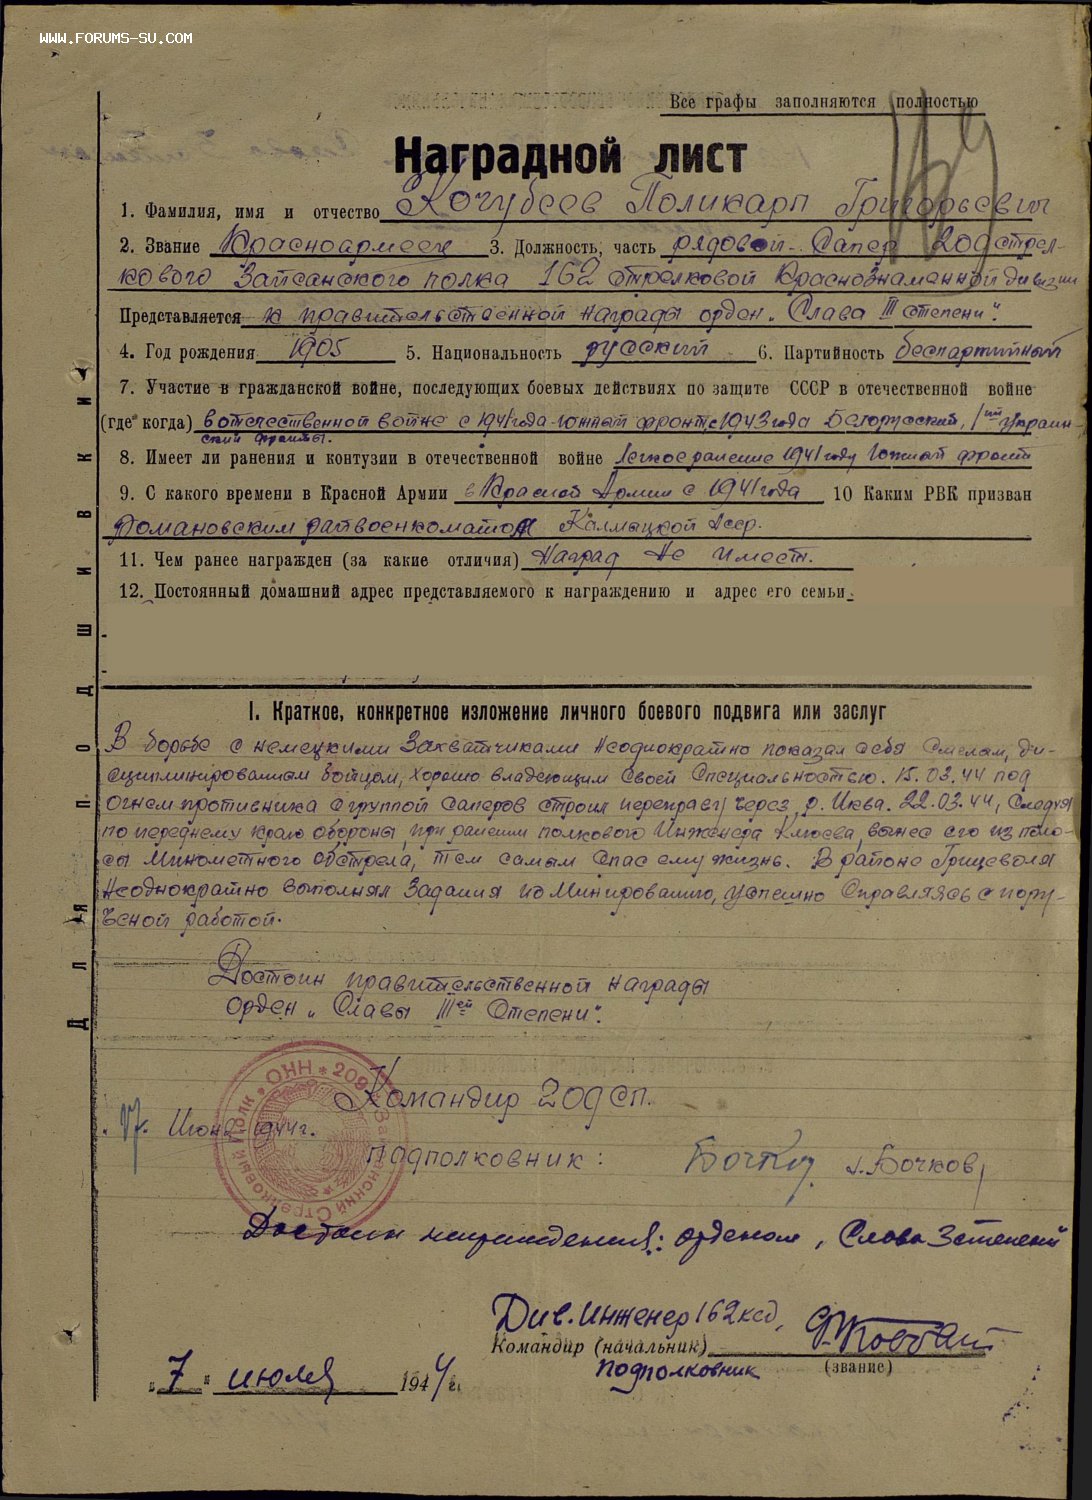 WWW.FORUMS-SU.COM
Все графы заполняются полностью
Наградной лист
1. Фамилия, имя и отчество Кочубеев Поликарп Григорьевич
2. Звание Красноармеец 3. Должность, часть рядовой-Сапер 209 стрел-
кового Зайсанского полка 162 стрелковой Краснознаменной дивизии
Представляется к правительственной награды орден „Слава III степени".
4. Год рождения 1905 5. Национальность русский 6. Партийность беспартийный
7. Участие в гражданской войне, последующих боевых действиях по защите СССР в отечественной войне
(где когда) в отечественной войне с 1941 года-южный фронт, с 1943 года Белорусский, 1ый Украин-
ский фронты.
8. Имеет ли ранения и контузии в отечественной войне Легкое ранение 1941 году Южный фронт
9. С какого времени в Красной Армии в Красной Армии с 1941 года 10 Каким РВК призван
Романовским райвоенкоматом Калмыцкой Асср.
11. Чем ранее награжден (за какие отличия) Наград не имеет.
12. Постоянный домашний адрес представляемого к награждению и адрес его семьи
ДЛЯ ПОДШИВКИ
I. Краткое, конкретное изложение личного боевого подвига или заслуг
В борьбе с немецкими Захватчиками неоднократно показал себя Смелым, ди-
сциплинированным бойцом, хорошо владеющим своей Специальностью. 15.03.44 под
огнем противника с группой саперов строил переправу через р. Иква. 22.03.44, Следуя
по переднему краю обороны, при ранении полкового Инженера Клюева, вынес его из поло-
сы Минометного обстрела, тем самым Спас ему жизнь. В районе Грицеволя
Неоднократно выполнял Задания по Минированию, успешно Справляясь с пору-
ченой работой.
Достоин правительственной награды
орден „Славы IIIей Степени".
Командир 209 сп.
17. Июня 1944 г.
подполковник: Бочков /Бочков/
ОНН * 209 Зайсанский Стрелковый Полк *
Достоин награждения: орденом, Слава 3 степени
Див. Инженер 162 ксд,
Командир (начальник)
подполковник (звание)
„7" июля 1944 г.